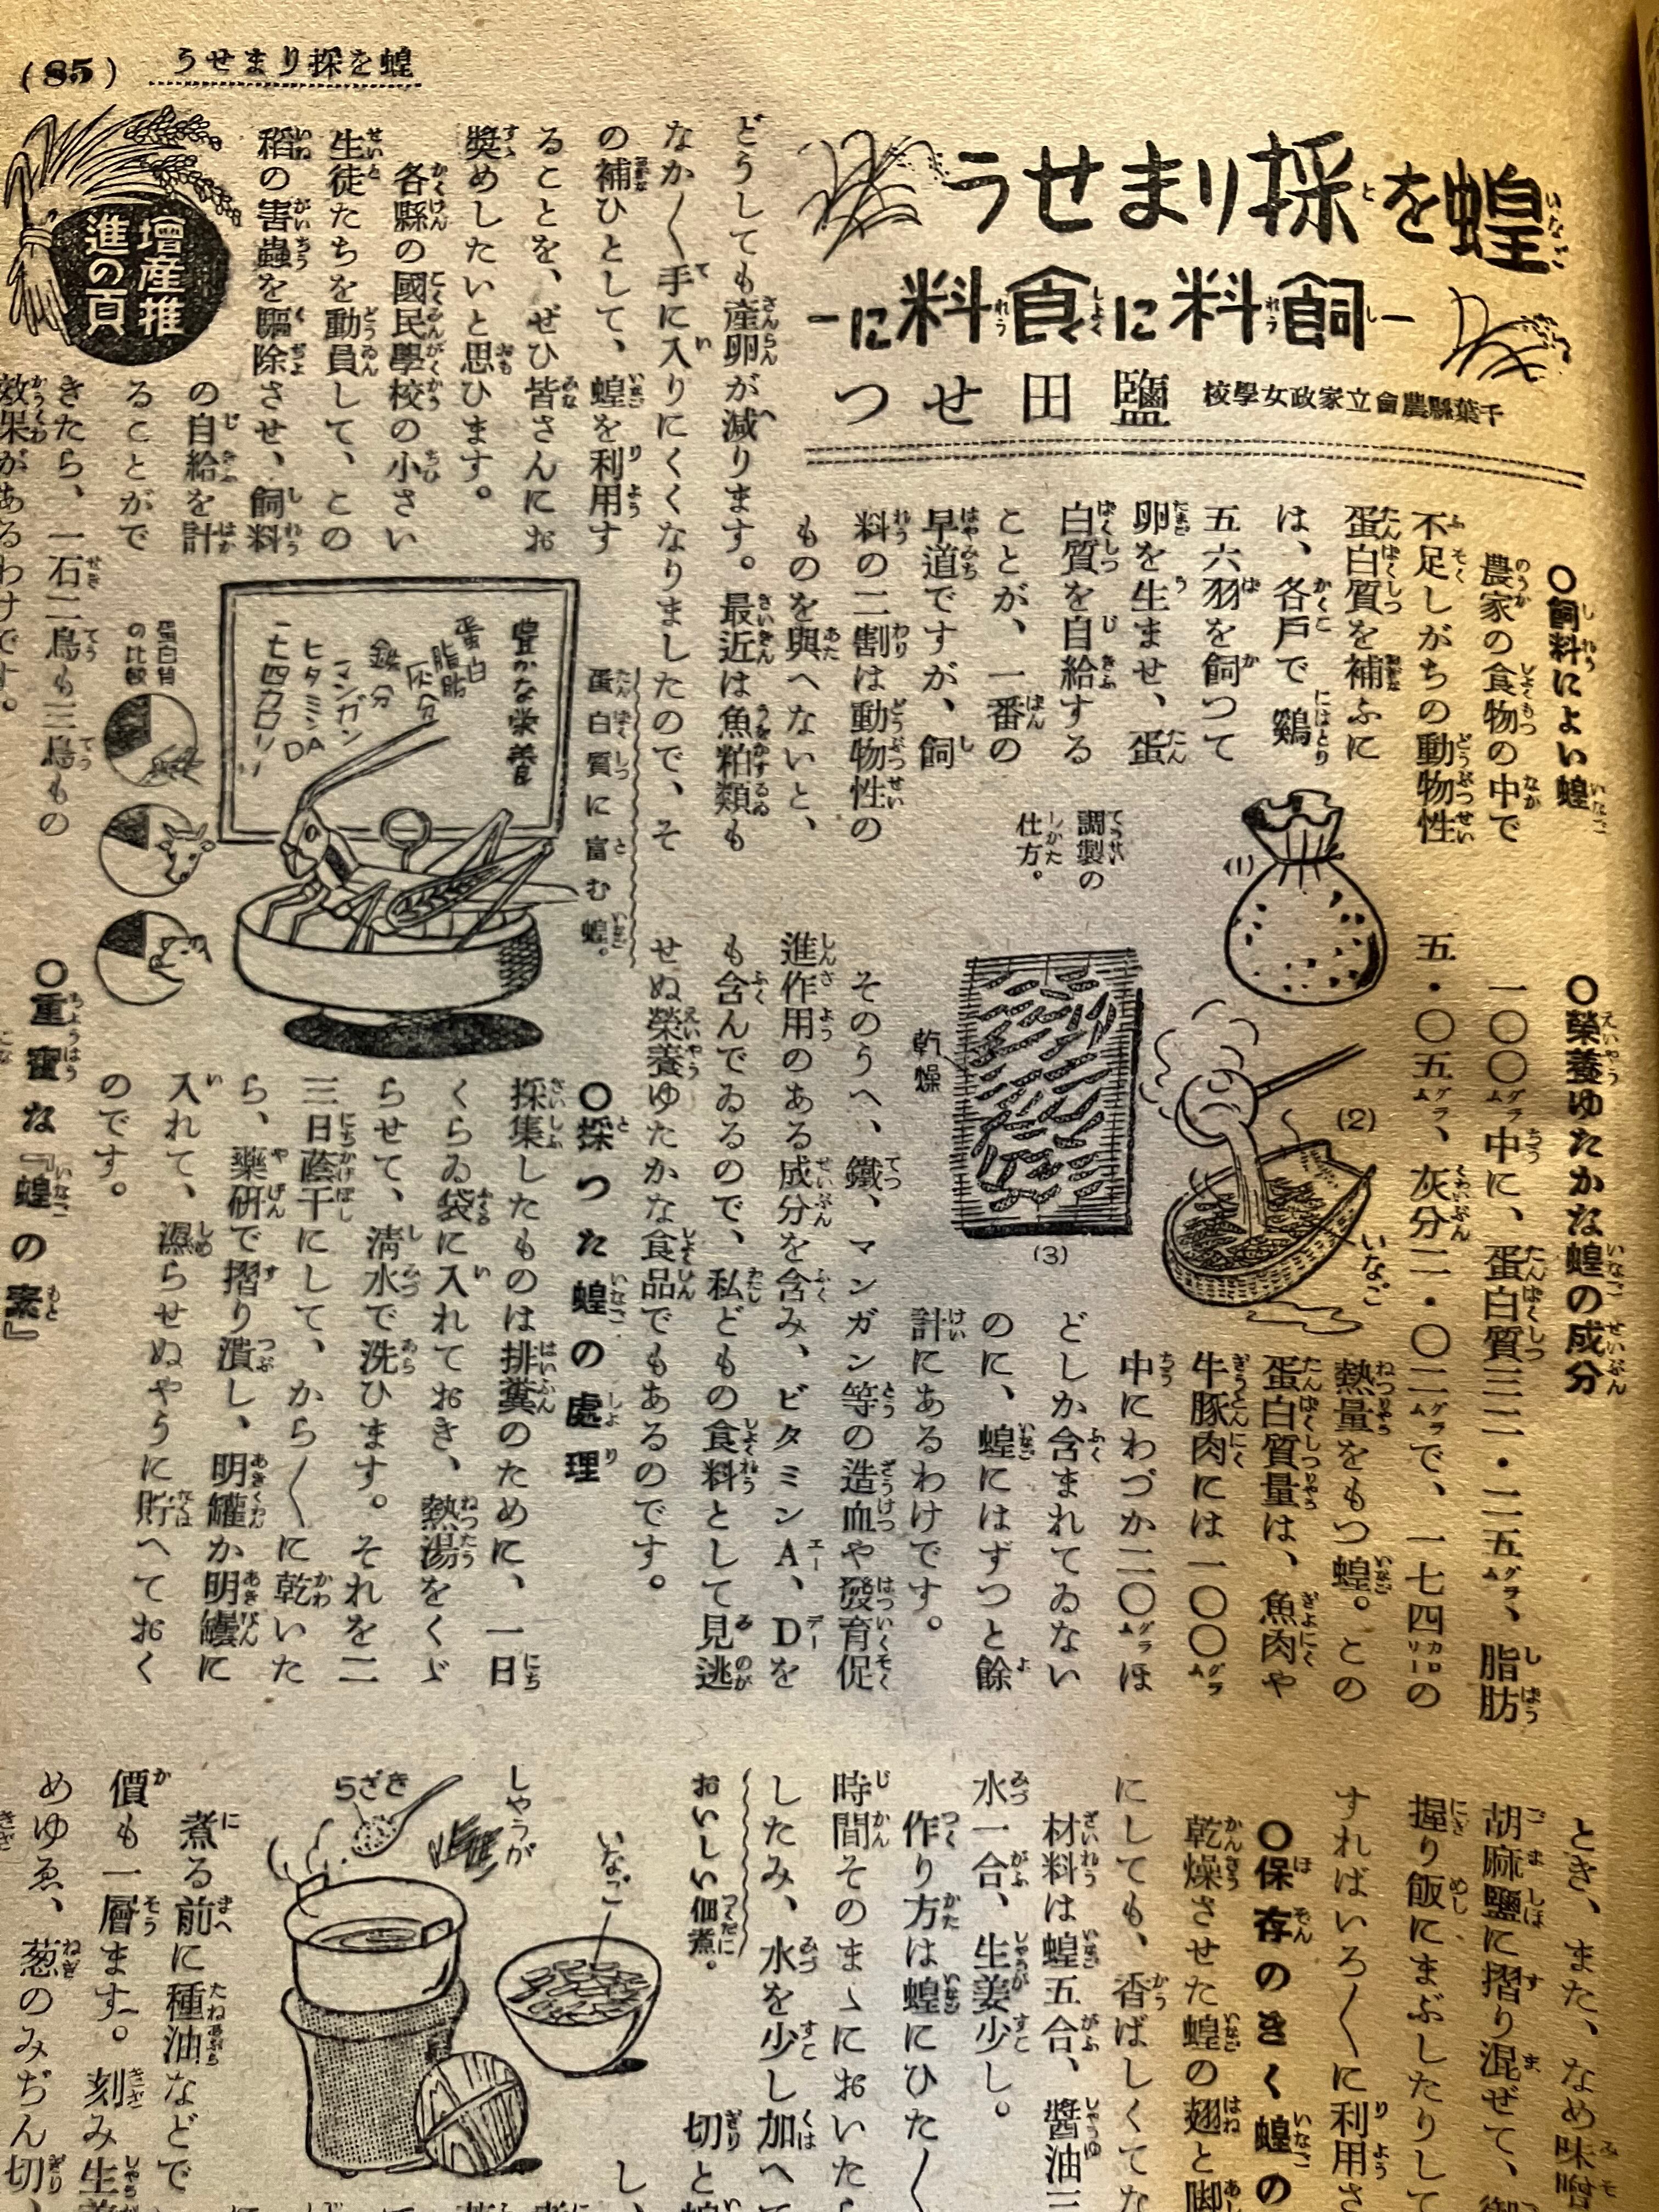 (85)
うせまり採を蝗
蝗を採りませう
―飼料に食料に―
千葉縣農會立家政女學校
鹽田せつ
増産推
進の頁
○飼料によい蝗
農家の食物の中で
不足しがちの動物性
蛋白質を補ふに
は、各戸で鷄
五六羽を飼つて
卵を生ませ、蛋
白質を自給する
ことが、一番の
早道ですが、飼
料の二割は動物性の
ものを與へないと、
どうしても産卵が減ります。最近は魚粕類も
なか〱手に入りにくくなりましたので、そ
の補ひとして、蝗を利用す
ることを、ぜひ皆さんにお
奬めしたいと思ひます。
各縣の國民學校の小さい
生徒たちを動員して、この
稻の害蟲を驅除させ、飼料
の自給を計
ることがで
きたら、一石二鳥も三鳥もの
效果があるわけです。
調製の
仕方。
(1)
(2)
いなご
(3)
乾燥
豊かな栄養
蛋白
脂肪
灰分
鉄分
マンガン
ヒタミンDA
一七四カロリー
蛋白質
の比較
蛋白質に富む蝗。
○榮養ゆたかな蝗の成分
一〇〇グラム中に、蛋白質三三・二五グラム、脂肪
五・〇五グラム、灰分二・〇二グラムで、一七四カロリーの
熱量をもつ蝗。この
蛋白質量は、魚肉や
牛豚肉には一〇〇グラム
中にわづか二〇グラムほ
どしか含まれてゐない
のに、蝗にはずつと餘
計にあるわけです。
そのうへ、鐵、マンガン等の造血や發育促
進作用のある成分を含み、ビタミンA、Dを
も含んでゐるので、私どもの食料として見逃
せぬ榮養ゆたかな食品でもあるのです。
○採つた蝗の處理
採集したものは排糞のために、一日
くらゐ袋に入れておき、熱湯をくゞ
らせて、淸水で洗ひます。それを二
三日蔭干にして、から〱に乾いた
ら、藥研で摺り潰し、明罐か明罎に
入れて、濕らせぬやうに貯へておく
のです。
○重寶な『蝗の素』
とき、また、なめ味噌
胡麻鹽に摺り混ぜて、御
握り飯にまぶしたりして
すればいろ〱に利用さ
○保存のきく蝗の
乾燥させた蝗の翅と脚
にしても、香ばしくてな
材料は蝗五合、醬油三
水一合、生姜少し。
作り方は蝗にひた〱
時間そのまゝにおいたら
したみ、水を少し加へて
おいしい佃煮。
しやうが
らざき
いなご
切と
煮る前に種油などで
價も一層ます。刻み生姜
めゆゑ、葱のみぢん切、